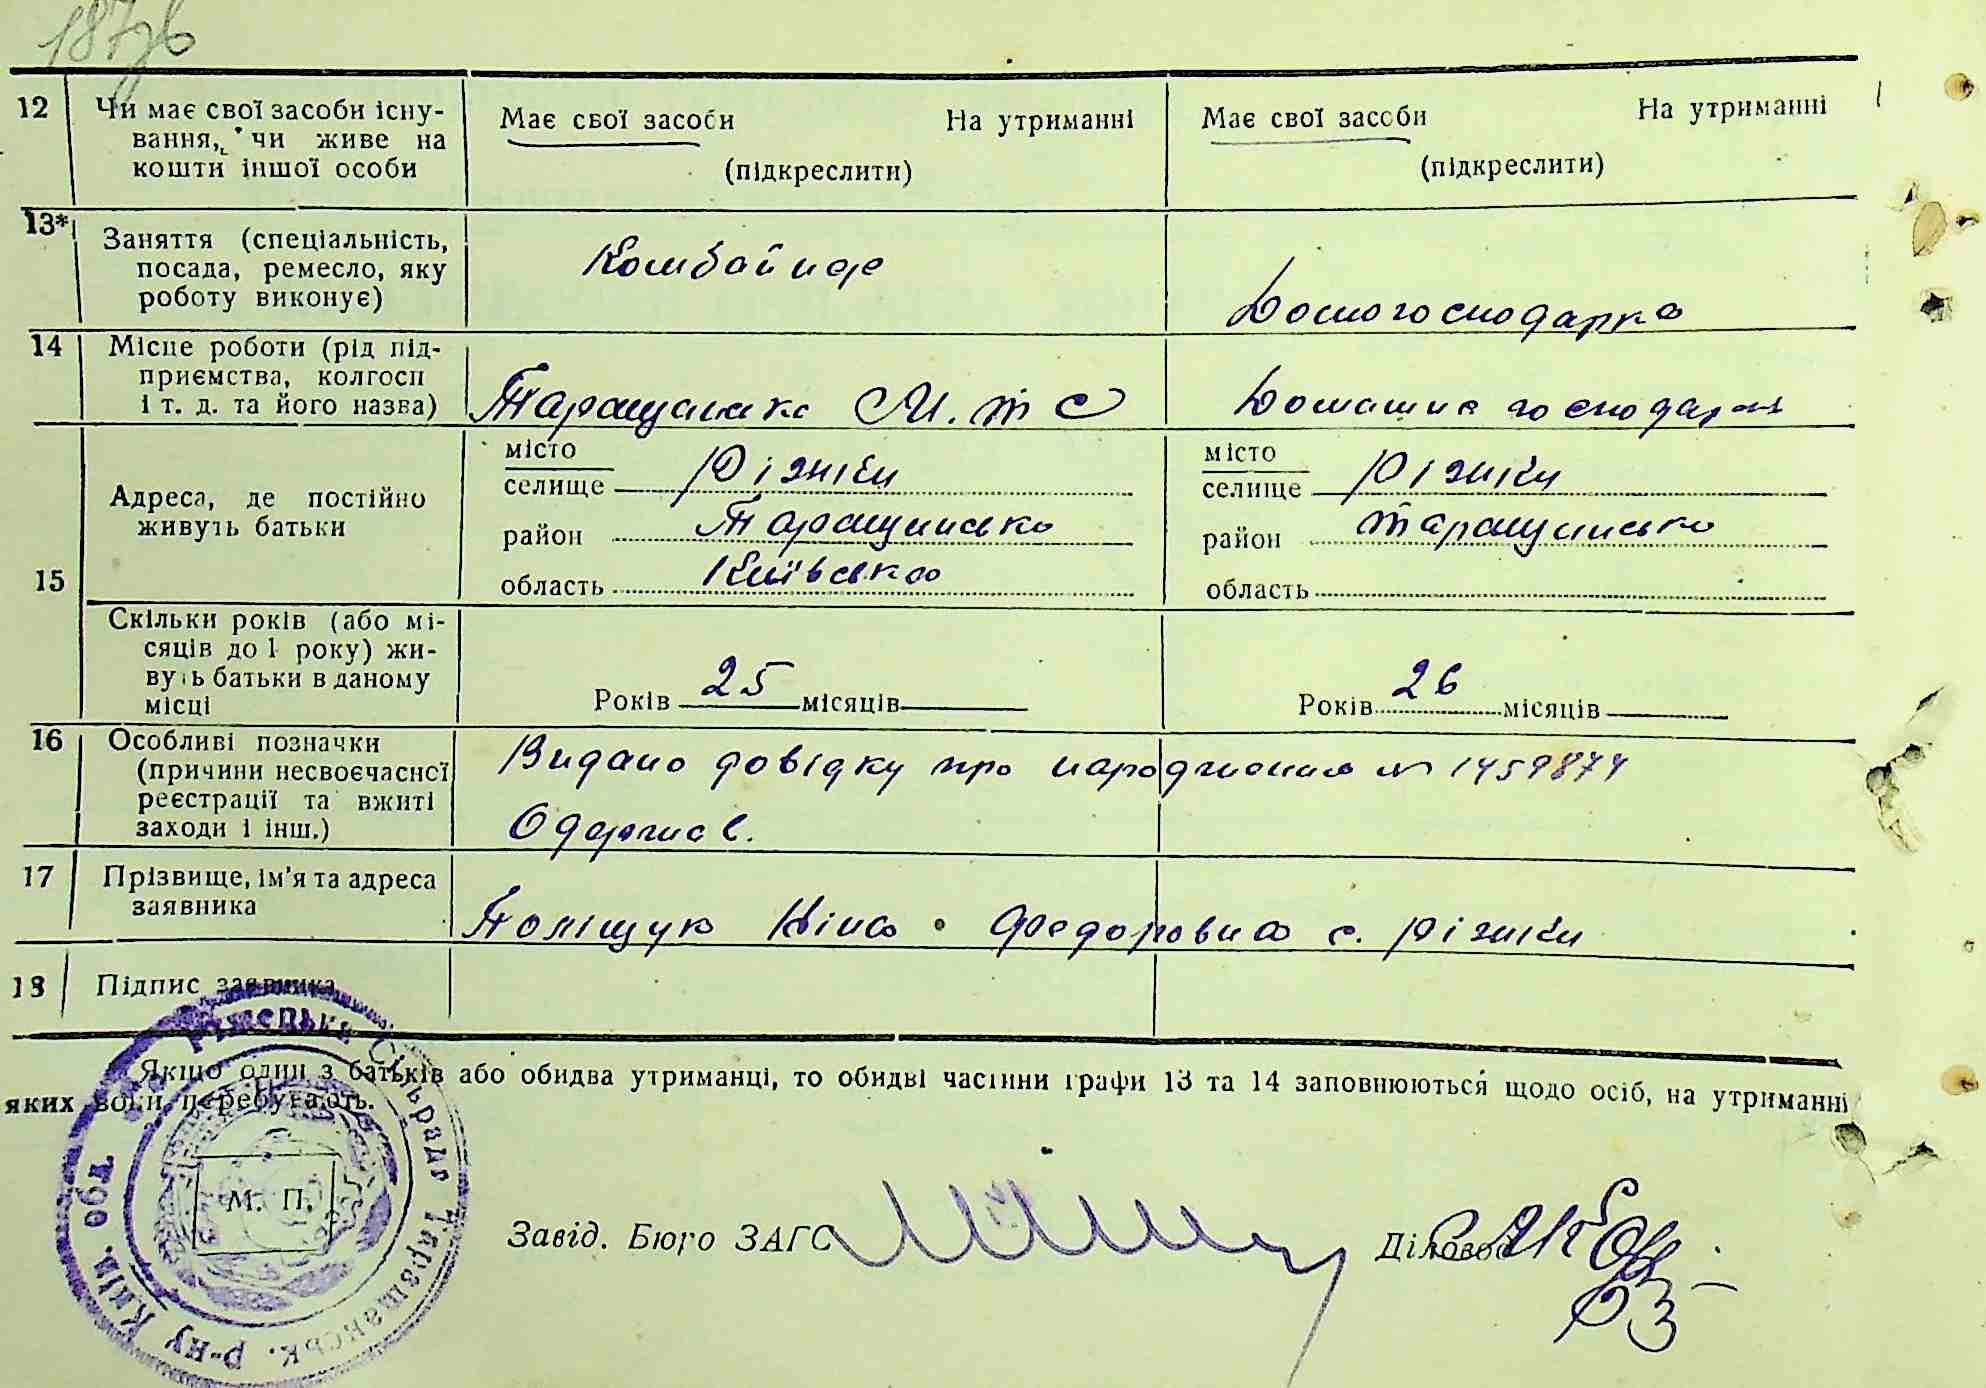 187зв
12 Чи має свої засоби існу- Має свої засоби На утриманні Має свої засоби На утриманні
вання, чи живе на
кошти іншої особи (підкреслити) (підкреслити)
13* Заняття (спеціальність,
посада, ремесло, яку Комбайнер
роботу виконує) Домогосподарка
14 Місце роботи (рід під-
приємства, колгосп
і т. д. та його назва) М.т.с Домашнє
15 Адреса, де постійно
живуть батьки
місто місто
селище Ріжки селище Ріжки
район район
область Київська область
Скільки років (або мі-
сяців до 1 року) жи-
вуть батьки в даному
місці Років 25 місяців Років 26 місяців
16 Особливі позначки Видано довідку про народження № 1459874
(причини несвоєчасної
реєстрації та вжиті
заходи і інш.)
17 Прізвище, ім'я та адреса
заявника Поліщук Ніна Федоровна с. Ріжки
18 Підпис заявника
Якщо один з батьків або обидва утриманці, то обидві частини графи 13 та 14 заповнюються щодо осіб, на утриманні
яких вони перебувають.
М. П.
Завід. Бюро ЗАГС Діловод
Сільрада Таращанськ. р-ну Київ. обл.